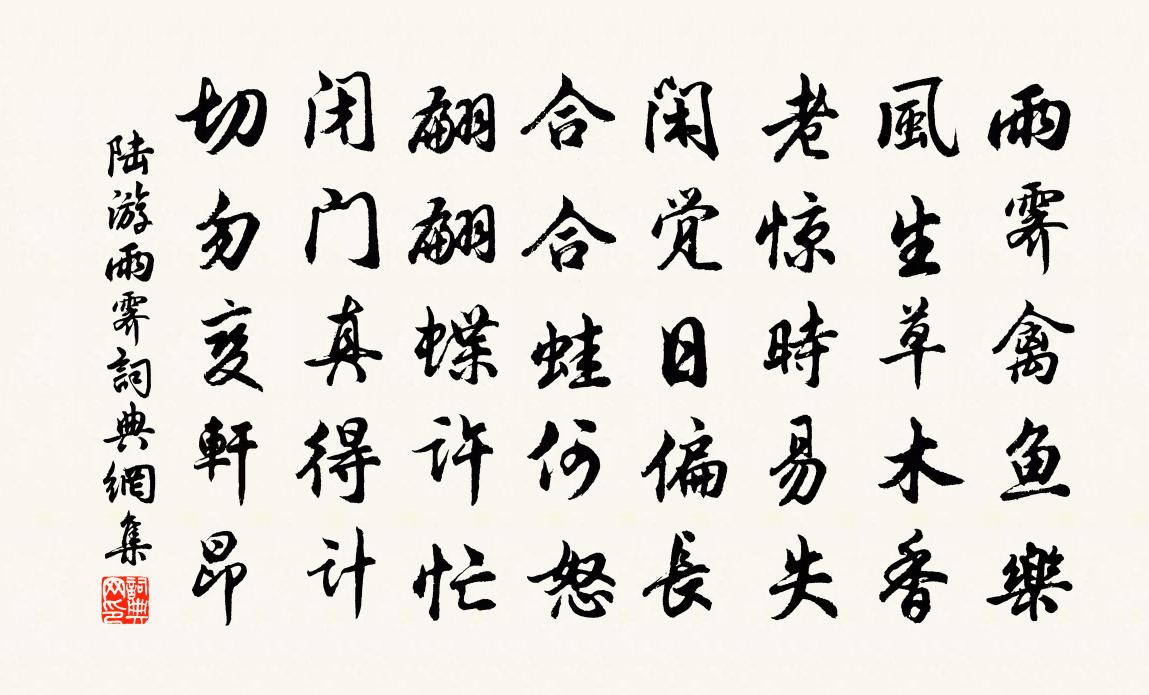 雨霽禽魚樂
風生草木香
老惊時易失
闲觉日偏長
合合蛙何怒
翩翩蝶许忙
闭门真得计
切勿变軒昂
陆游雨霽詞典網集
詞典网印